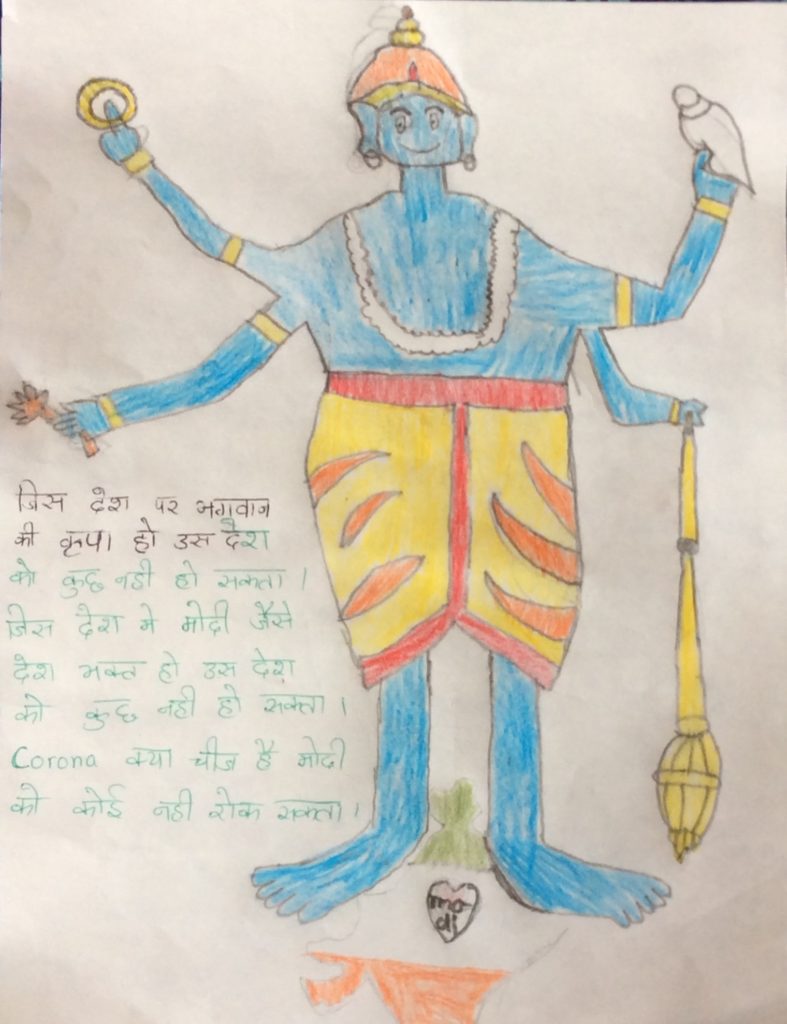 जिस देश पर भगवान
की कृपा हो उस देश
को कुछ नही हो सकता।
जिस देश मे मोदी जैसे
देश भक्त हो उस देश
को कुछ नही हो सकता।
Corona क्या चीज है मोदी
को कोई नही रोक सकता।
mo-
di